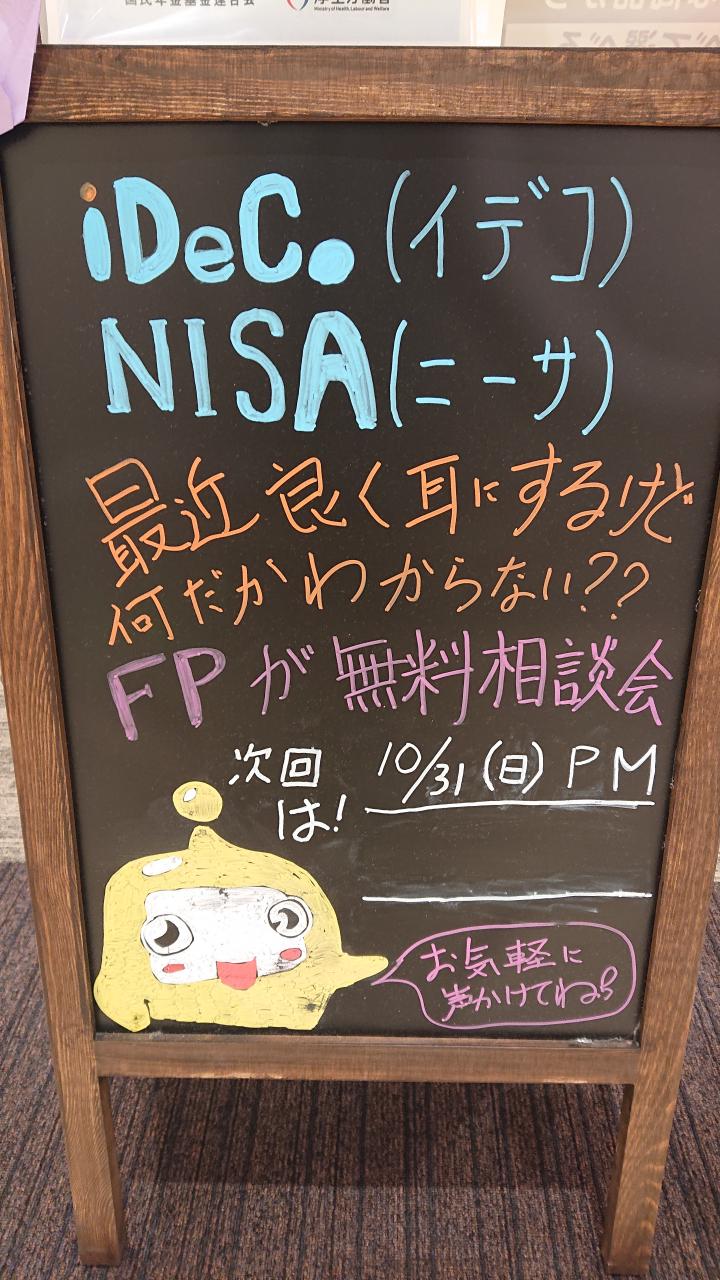 国民年金基金連合会
厚生労働省
Ministry of Health, Labour and Welfare
iDeCo (イデコ)
NISA (ニーサ)
最近良く耳にするけど
何だかわからない??
FPが無料相談会
次回は! 10/31(日) PM
お気軽に
声かけてね